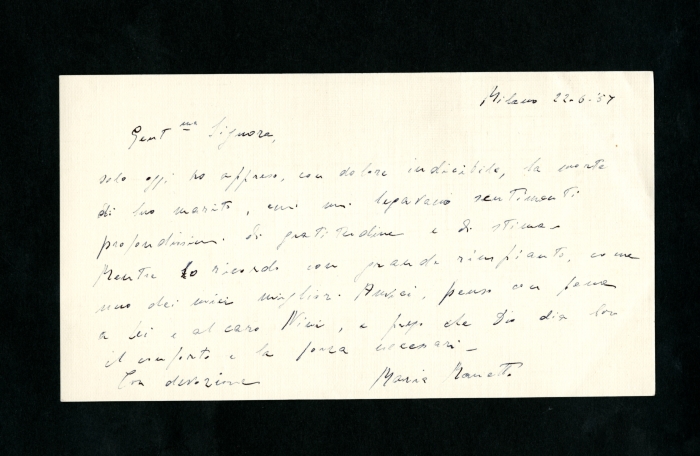 Milano 22-6-'57
Gent.ma Signora,
solo oggi ho appreso, con dolore indicibile, la morte
di suo marito, cui mi legavano sentimenti
profondissimi di gratitudine e di stima.
Mentre lo ricordo con grande rimpianto, come
uno dei miei migliori Amici, penso con pena
a Lei e al caro Nini, e prego che Dio dia loro
il conforto e la forza necessari.
Con devozione Maria